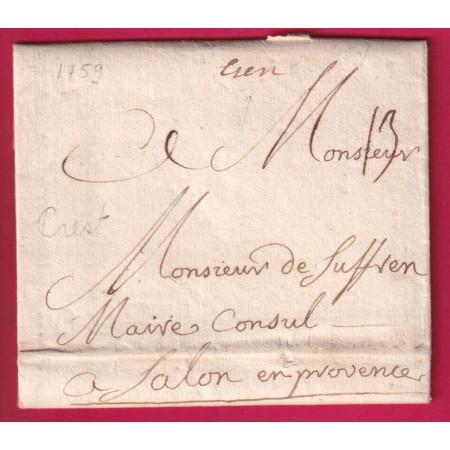 1759
A Monsieur 13
Crest
Monsieur de Suffren
Maire Consul
a Salon en provence